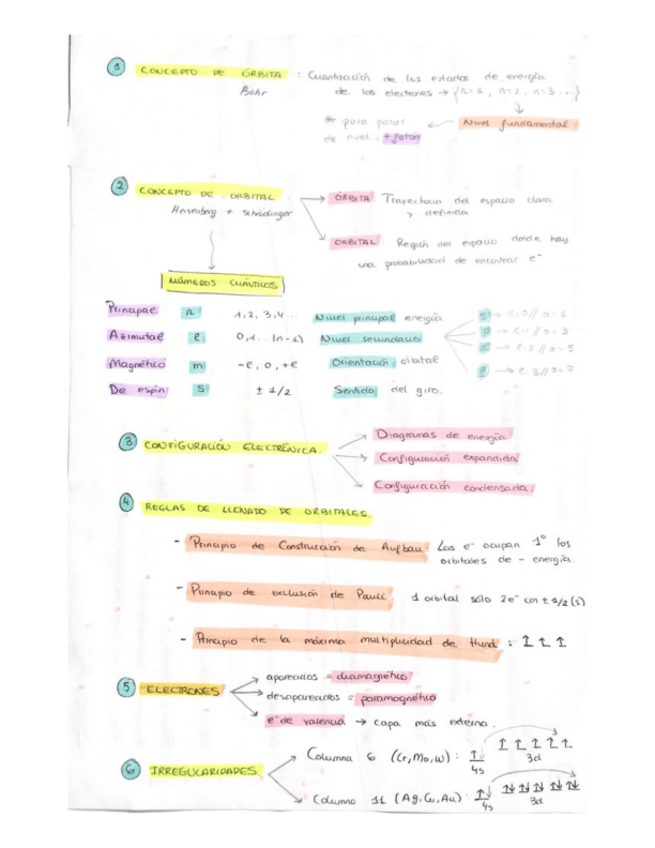 1 CONCEPTO DE ÓRBITA : Cuantización de los estados de energía
Bohr de los electrones → {n=1, n=2, n=3...}
* para pasar ← Nivel fundamental
de nivel: + fotón
2 CONCEPTO DE ORBITAL
Heisenberg + Schrödinger
ÓRBITA: Trayectoria del espacio clara
y definida
ORBITAL: Región del espacio donde hay
una probabilidad de encontrar e⁻
NÚMEROS CUÁNTICOS
Principal n 1, 2, 3, 4... Nivel principal energía s → l=0 // o=1
Azimutal l 0, 1... (n-1) Nivel secundario p → l=1 // o=3
Magnético m -l, 0, +l Orientación orbital d → l=2 // o=5
De espín s ± 1/2 Sentido del giro. → l=3 // o=7
3 CONFIGURACIÓN ELECTRÓNICA.
Diagramas de energía
Configuración expandida
Configuración condensada
4 REGLAS DE LLENADO DE ORBITALES.
- Principio de Construcción de Aufbau: Los e⁻ ocupan 1º los
orbitales de - energía.
- Principio de exclusión de Pauli: 1 orbital sólo 2e⁻ con ± 1/2 (s)
- Principio de la máxima multiplicidad de Hund: ↿ ↿ ↿
5 ELECTRONES
apareados = diamagnético
desapareados = paramagnético
e⁻ de valencia → capa más externa.
6 IRREGULARIDADES
Columna 6 (Cr, Mo, W): ↿⇂ ↿ ↿ ↿ ↿ ↿
4s 3d
Columna 11 (Ag, Cu, Au): ↿⇂ ↿⇂ ↿⇂ ↿⇂ ↿⇂ ↿⇂
4s 3d